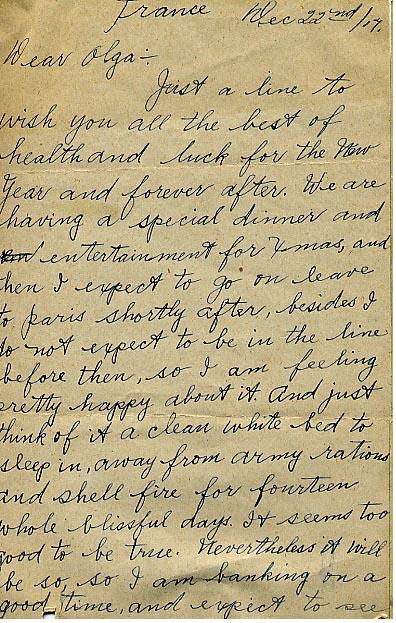 France Dec 22nd/17.
Dear Olga:-
Just a line to
wish you all the best of
health and luck for the New
Year and forever after. We are
having a special dinner and
entertainment for Xmas, and
then I expect to go on leave
to Paris shortly after, besides I
do not expect to be in the line
before then, so I am feeling
pretty happy about it. And just
think of it a clean white bed to
sleep in, away from army rations
and shell fire for fourteen
whole blissful days. It seems too
good to be true. Nevertheless it will
be so, so I am banking on a
good time, and expect to see